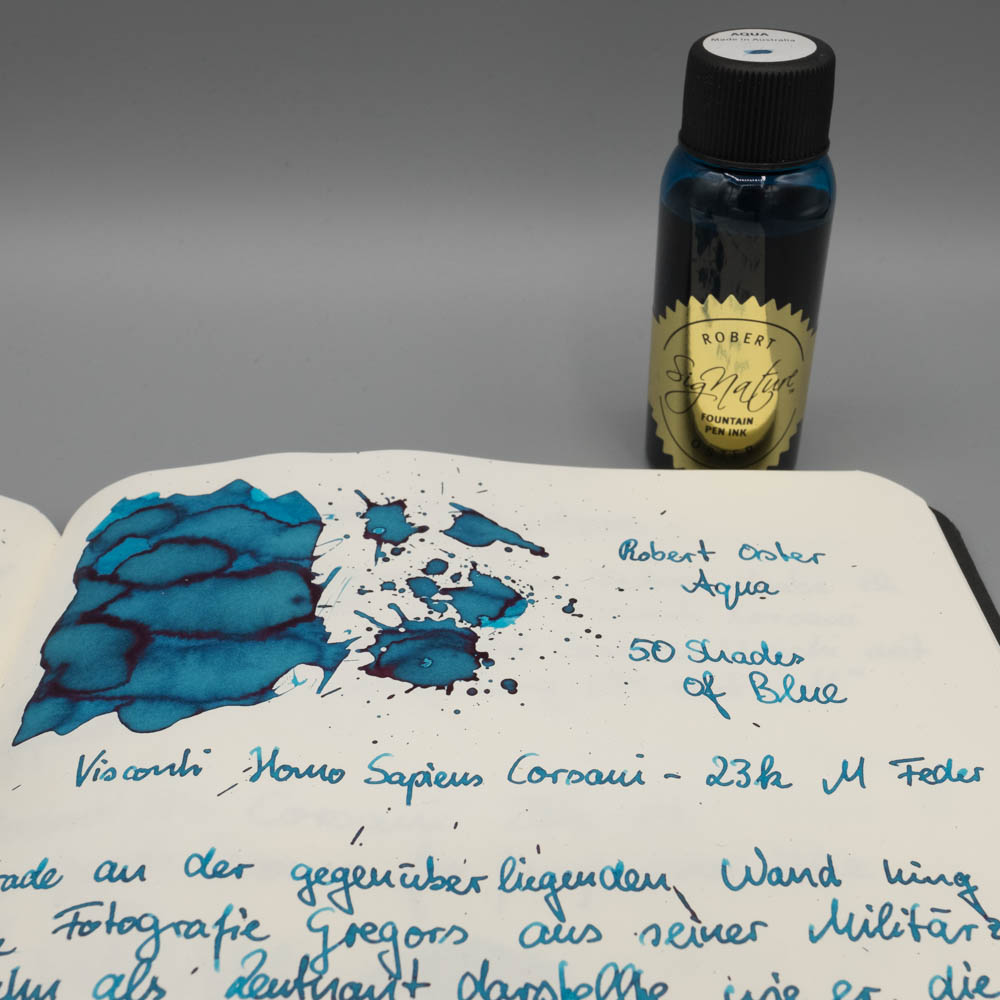 AQUA
Made in Australia
ROBERT
SigNature
FOUNTAIN
PEN INK
OSTER
Robert Oster
Aqua
50 Shades
of Blue
Visconti Homo Sapiens Corsani - 23k M Feder
rade an der gegenüberliegenden Wand hing
Fotografie Gregors aus seiner Militärz
als Leutnant darstellte wie er, die